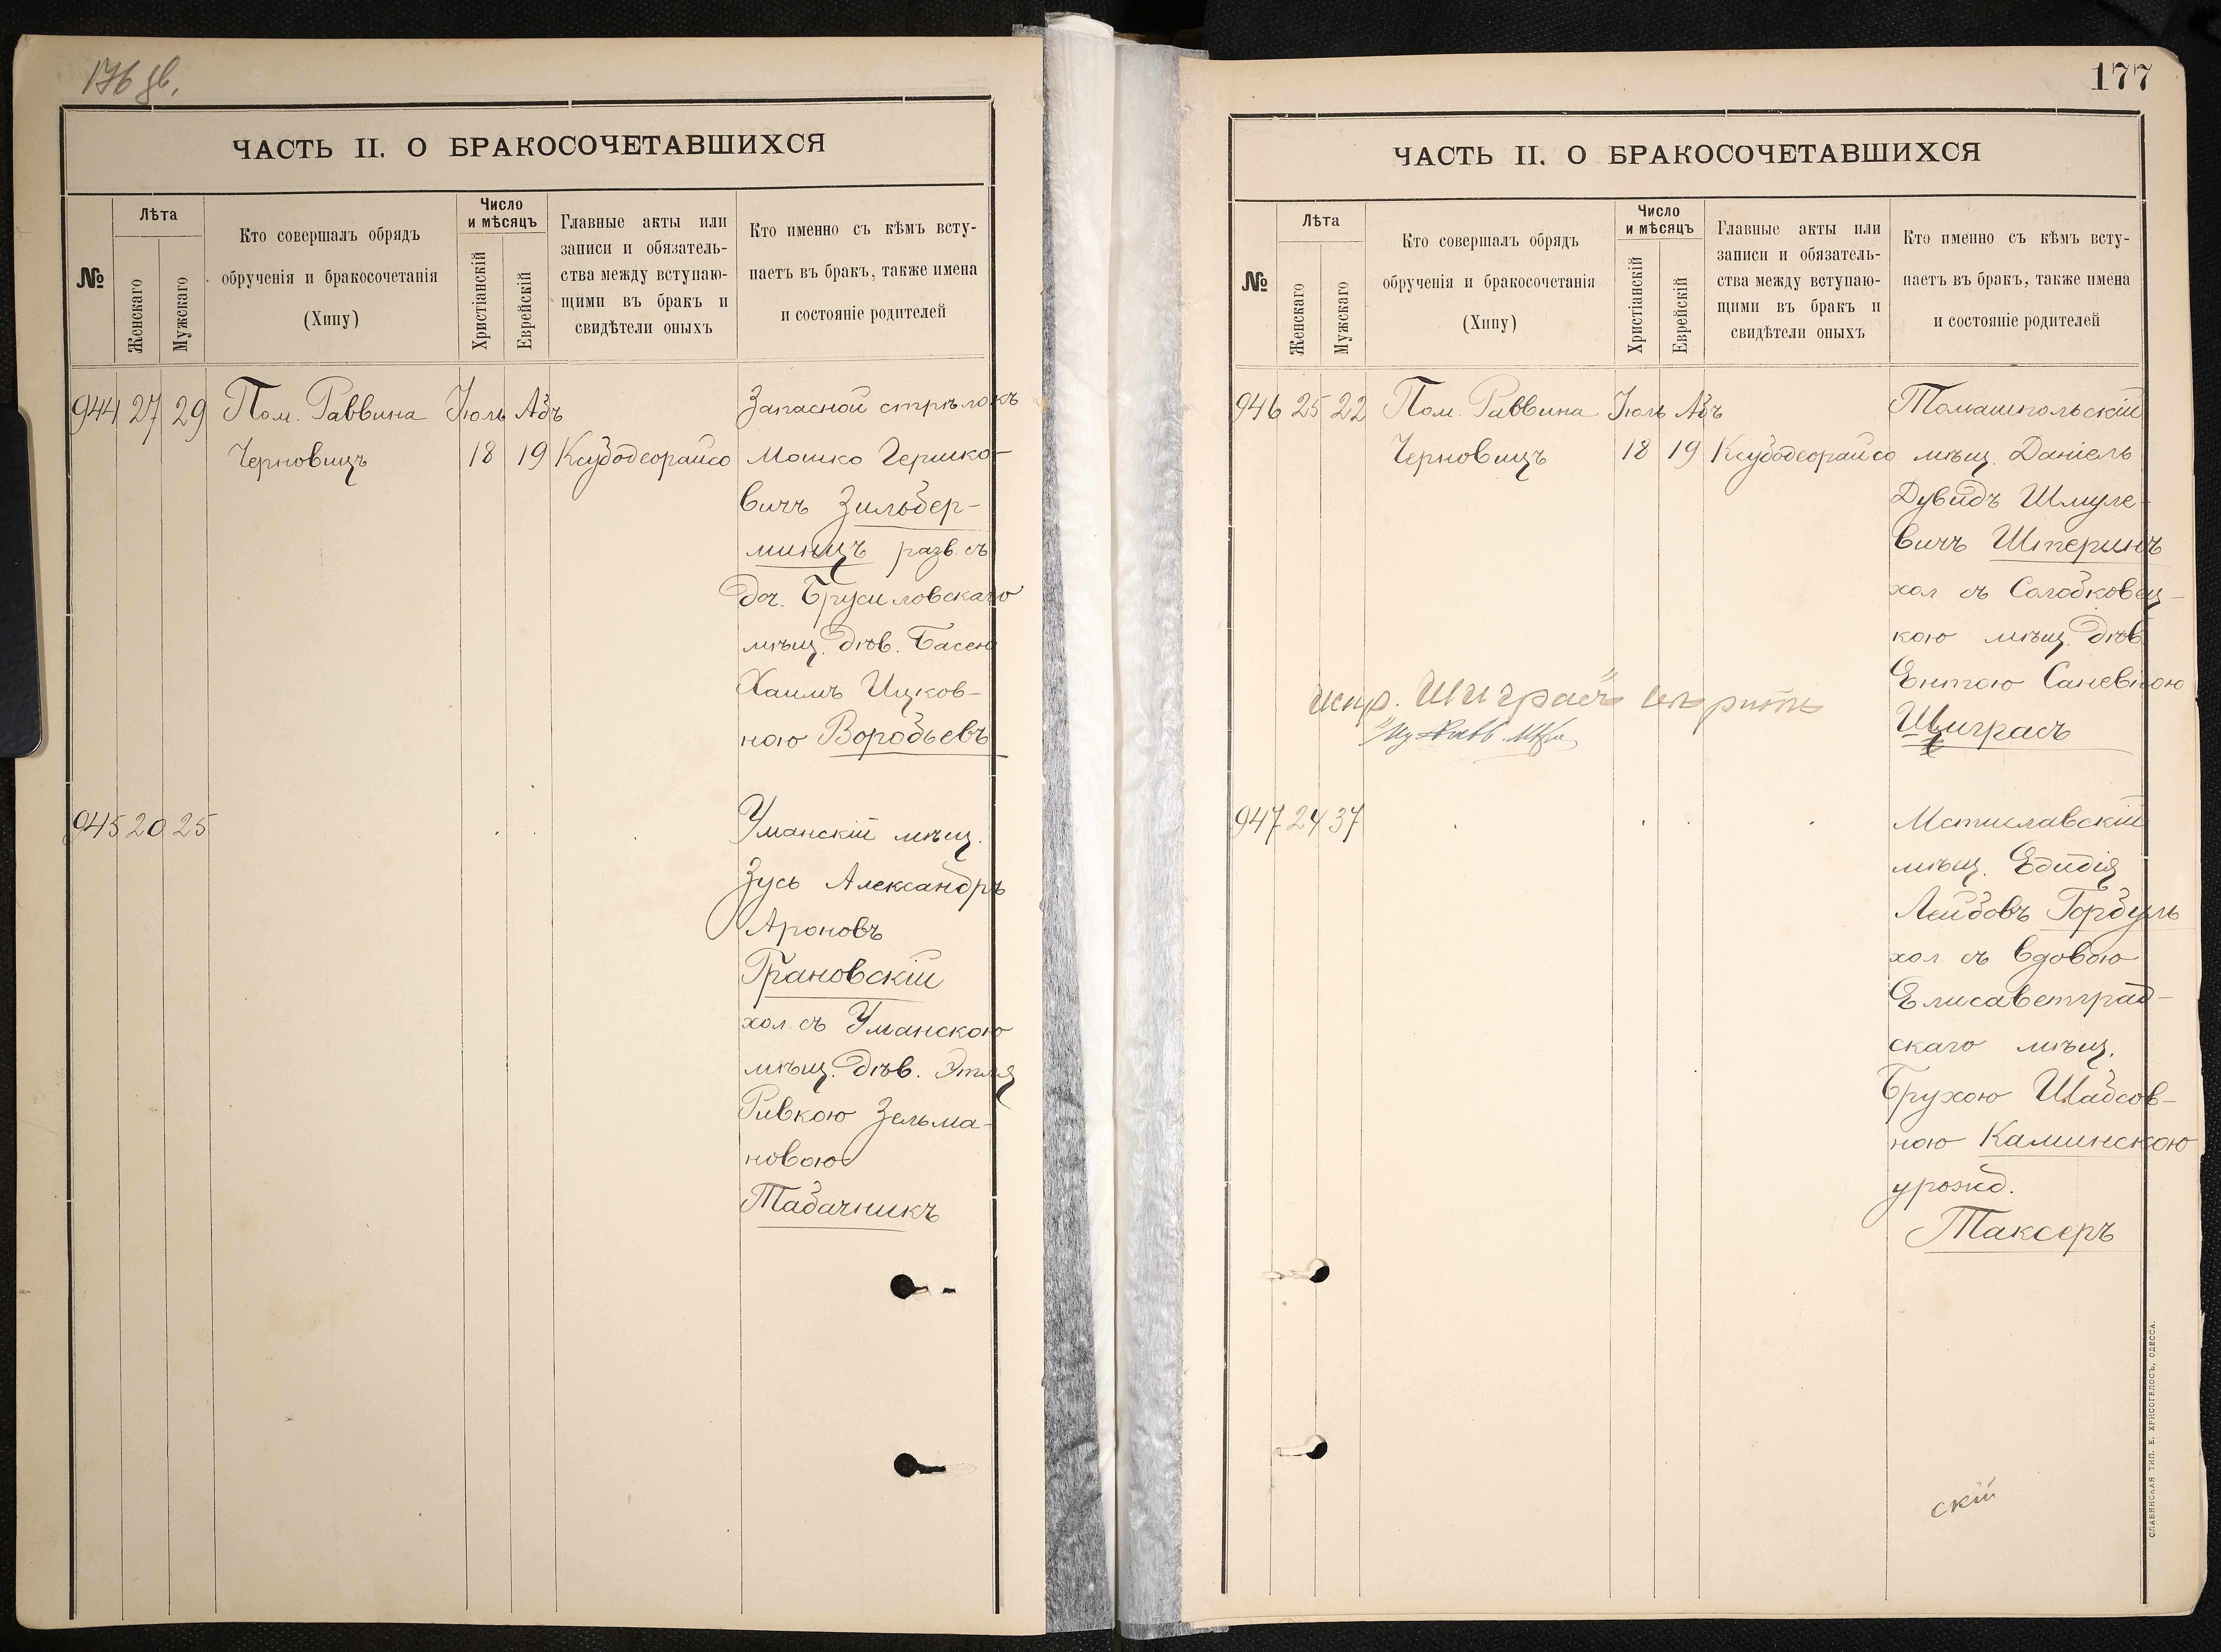 176 об.
ЧАСТЬ II. О БРАКОСОЧЕТАВШИХСЯ
№
Лѣта
Женскаго
Мужскаго
Кто совершалъ обрядъ
обрученія и бракосочетанія
(Хипу)
Число
и мѣсяцъ
Христіанскій
Еврейскій
Главные акты или
записи и обязатель-
ства между вступаю-
щими въ бракъ и
свидѣтели оныхъ
Кто именно съ кѣмъ всту-
паетъ въ бракъ, также имена
и состояніе родителей
944 27 29 Пом. Раввина Іюль Абъ Запасной стрѣлокъ
Черновицъ 18 19 Ксубодеорайсо Мошко Гершко-
вичъ Зильбер-
минцъ разв. съ
доч. Брусиловскаго
мѣщ. дѣв. Басею
Хаимъ Ицков-
ною Воробьевъ
945 20 25 Уманскій мѣщ.
Зусь Александръ
Ароновъ
Грановскій
хол. съ Уманскою
мѣщ. дѣв. Этля
Ривкою Зельма-
новою
Табачникъ
177
ЧАСТЬ II. О БРАКОСОЧЕТАВШИХСЯ
№
Лѣта
Женскаго
Мужскаго
Кто совершалъ обрядъ
обрученія и бракосочетанія
(Хипу)
Число
и мѣсяцъ
Христіанскій
Еврейскій
Главные акты или
записи и обязатель-
ства между вступаю-
щими въ бракъ и
свидѣтели оныхъ
Кто именно съ кѣмъ всту-
паетъ въ бракъ, также имена
и состояніе родителей
946 25 22 Пом. Раввина Іюль Абъ Томашпольскій
Черновицъ 18 19 Ксубодеорайсо мѣщ. Даніель
Дувидъ Шмуле-
вичъ Штеринъ
хол съ Солобковец-
кою мѣщ. дѣв.
Ентою Саневною
Шиграсъ
испр. Шиграсъ
947 24 37 Мстиславскій
мѣщ. Едидія
Лейбовъ Горбуль
хол съ вдовою
Елисаветград-
скаго мѣщ.
Брухою Шабсов-
ною Каминскою
урожд.
Таксеръ
скій
СЛАВЯНСКАЯ ТИП. Е. ХРИСОГЕЛОСЪ, ОДЕССА.